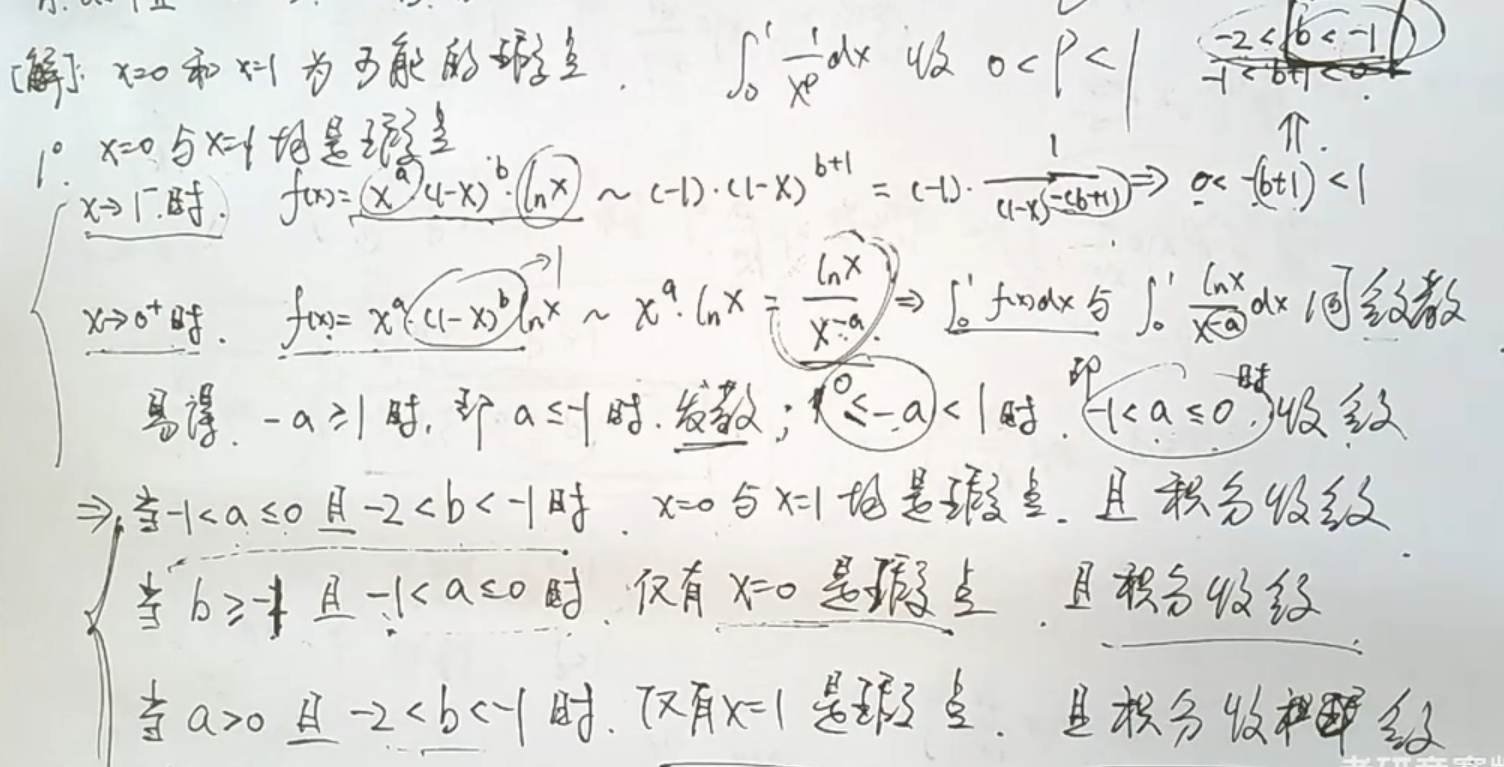 [解]: x=0 和 x=1 为可能的瑕点. ∫₀¹ 1/x^p dx 收 0<p<1
-2<b<-1
-1<b+1<0
1° x=0 与 x=1 均是瑕点
x→1⁻时. f(x)= x^a (1-x)^b · ln x ~ (-1)·(1-x)^{b+1} = (-1)· 1/(1-x)^{-(b+1)} ⇒ 0<-(b+1)<1 ⇑.
x→0⁺时. f(x)= x^a·(1-x)^b ln x →1 ~ x^a·ln x = ln x/x^{-a} ⇒ ∫₀¹ f(x)dx 与 ∫₀¹ ln x/x^{-a} dx 同敛散
易得. -a≥1 时, 即 a≤-1 时. 发散; 0≤-a<1 时. 即 -1<a≤0 时 收敛
⇒ 当 -1<a≤0 且 -2<b<-1 时. x=0 与 x=1 均是瑕点. 且积分收敛.
当 b≥-1 且 -1<a≤0 时. 仅有 x=0 是瑕点. 且积分收敛
当 a>0 且 -2<b<-1 时. 仅有 x=1 是瑕点. 且积分收敛